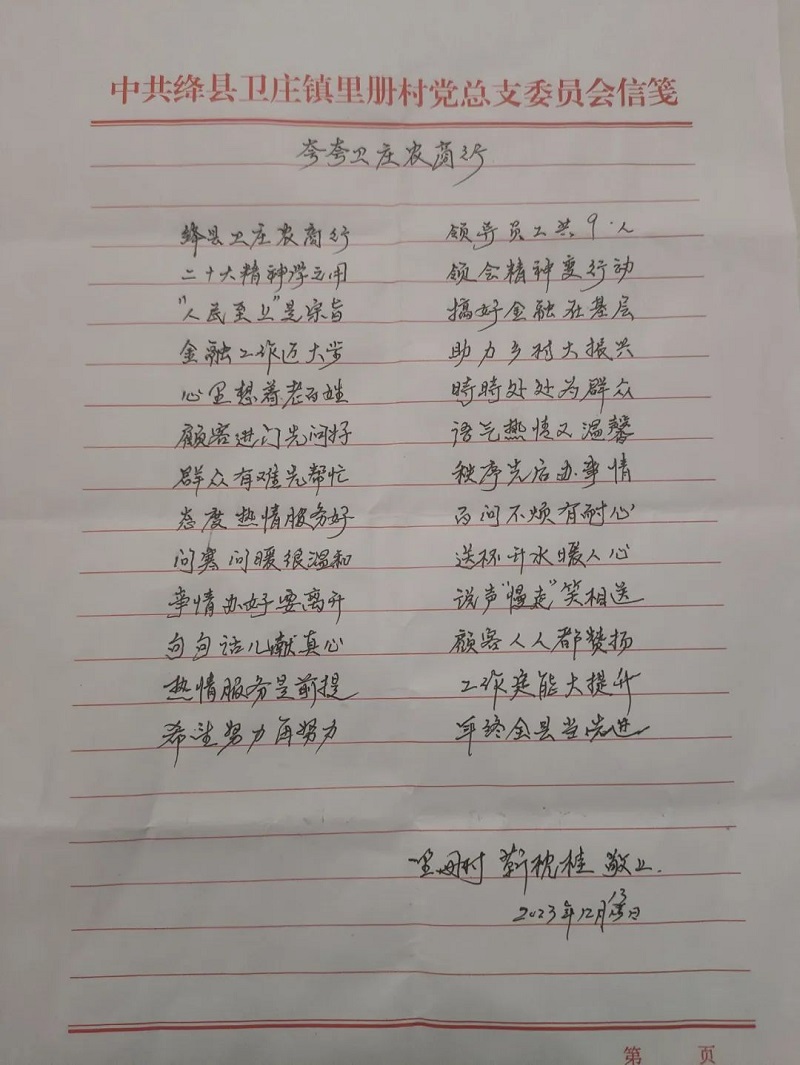 中共绛县卫庄镇里册村党总支委员会信笺
夸夸卫庄农商行
绛县卫庄农商行 领导员工共9人
二十大精神学立用 领会精神变行动
"人民至上"是宗旨 搞好金融在基层
金融工作迈大步 助力乡村大振兴
心里想着老百姓 時時处处为群众
顾客进门先问好 语气热情又温馨
群众有难先帮忙 秩序先后办事情
态度热情服务好 百问不烦有耐心
问寒问暖很温和 送杯开水暖人心
事情办好要离开 说声"慢走"笑相送
句句话儿献真心 顾客人人都赞扬
热情服务是前提 工作定能大提升
希望努力再努力 年终全县当先进
里册村 靳枕桂 敬上.
2023年12月13日
第 页